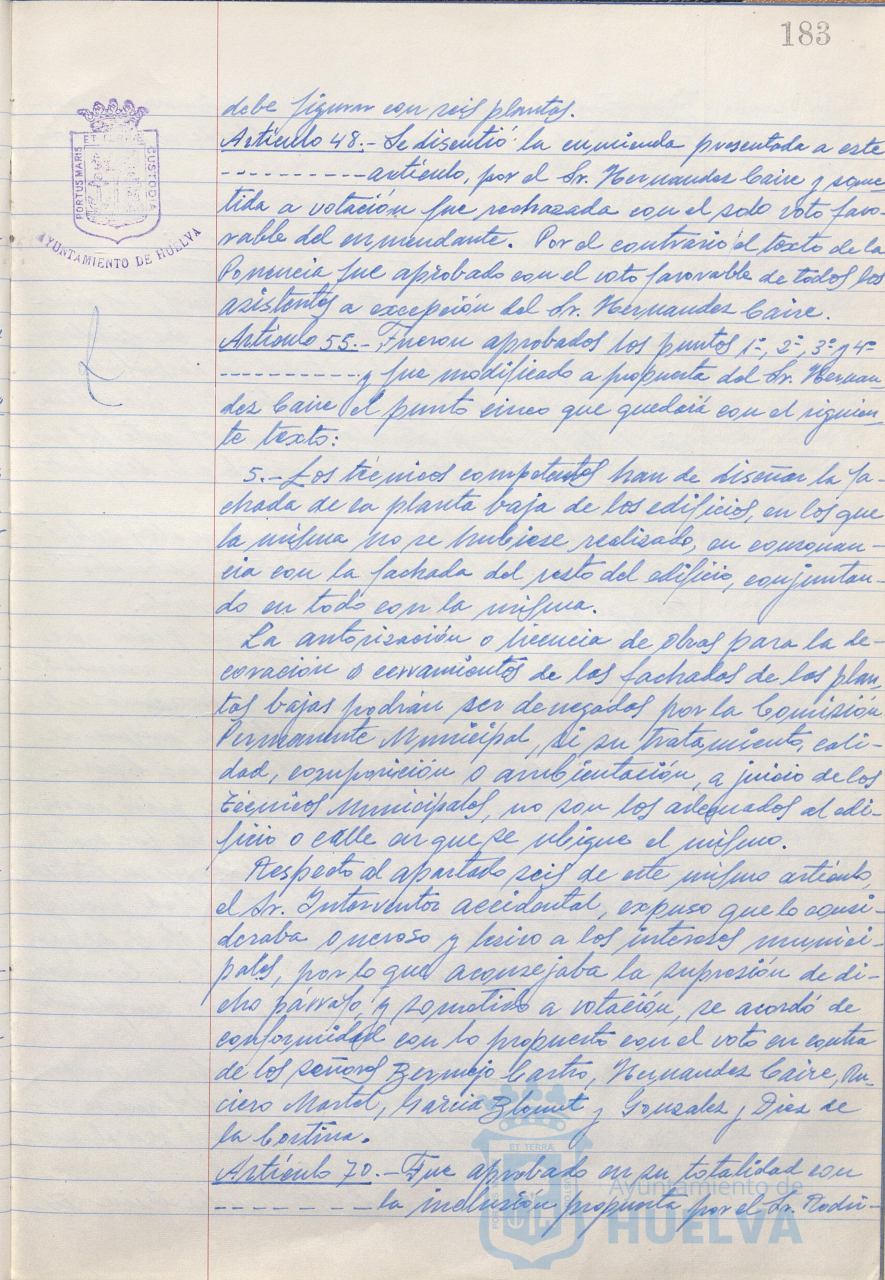 183
PORTUS MARIS
ET TERRAE
CUSTODIA
AYUNTAMIENTO DE HUELVA
debe figurar con seis plantas.
Artículo 48.- Se discutió la enmienda presentada a este
---------- artículo, por el Sr. Hernandez Caire y some-
tida a votación fue rechazada con el solo voto favo-
rable del enmendante. Por el contrario el texto de la
Ponencia fue aprobado con el voto favorable de todos los
asistentes a excepción del Sr. Hernandez Caire.
Artículo 55.- Fueron aprobados los puntos 1º, 2º, 3º y 4º
---------- y fue modificado a propuesta del Sr. Hernan-
dez Caire el punto cinco que quedará con el siguien-
te texto:
5.- Los técnicos competentes han de diseñar la fa-
chada de la planta baja de los edificios, en los que
la misma no se hubiese realizado, en consonan-
cia con la fachada del resto del edificio, conjuntan-
do en todo con la misma.
La autorización o licencia de obras para la de-
coración o cerramientos de las fachadas de las plan-
tas bajas podrán ser denegadas por la Comisión
Permanente Municipal, si su tratamiento, cali-
dad, composición o ambientación, a juicio de los
Técnicos Municipales, no son los adecuados al edi-
ficio o calle en que se ubique el mismo.
Respecto al apartado seis de este mismo artículo,
el Sr. Interventor accidental, expuso que lo consi-
deraba oneroso y lesivo a los intereses munici-
pales, por lo que aconsejaba la supresión de di-
cho párrafo, y sometido a votación, se acordó de
conformidad con lo propuesto con el voto en contra
de los señores Bermejo Castro, Hernandez Caire,
Martel, Garcia y Gonzalez y Diez de
la Cortina.
Artículo 70.- Fue aprobado en su totalidad con
---------- la inclusión propuesta por el Sr. Rodri-
Ayuntamiento de
HUELVA